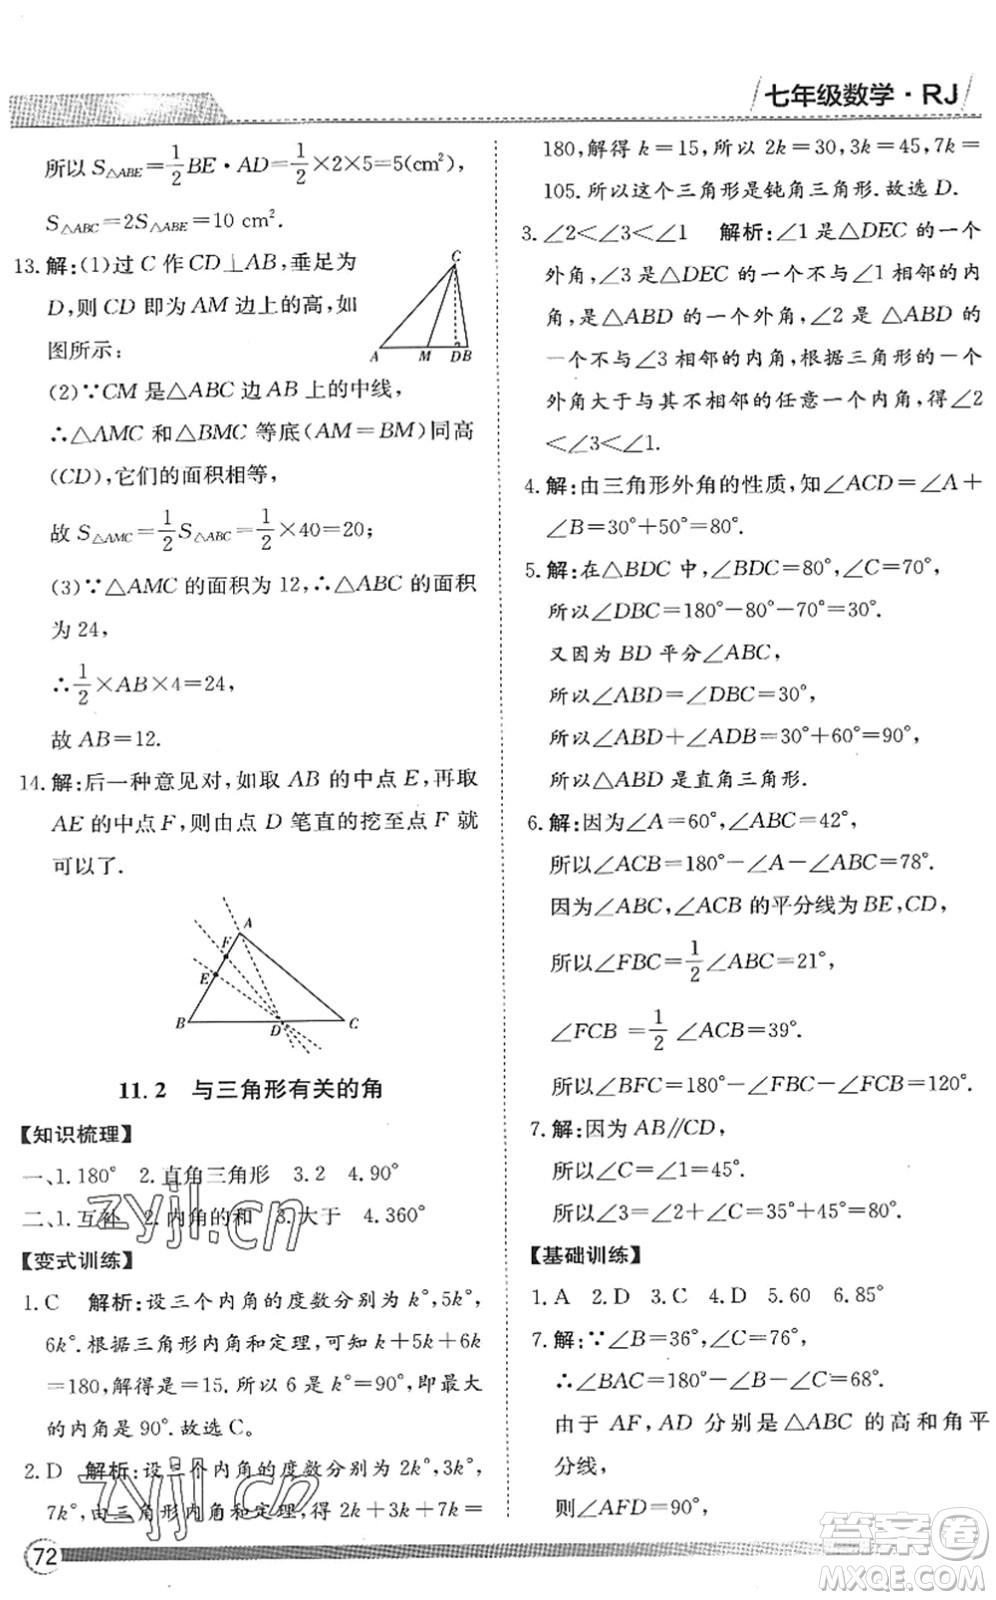 七年级数学·RJ
所以 S△ABE=1/2BE·AD=1/2×2×5=5(cm²),
S△ABC=2S△ABE=10 cm².
13.解:(1)过 C 作 CD⊥AB,垂足为
D,则 CD 即为 AM 边上的高,如
图所示:
C
A M D B
(2)∵CM 是△ABC 边 AB 上的中线,
∴△AMC 和△BMC 等底(AM=BM)同高
(CD),它们的面积相等,
故 S△AMC=1/2S△ABC=1/2×40=20;
(3)∵△AMC 的面积为 12,∴△ABC 的面积
为 24,
∴1/2×AB×4=24,
故 AB=12.
14.解:后一种意见对,如取 AB 的中点 E,再取
AE 的中点 F,则由点 D 笔直的挖至点 F 就
可以了.
A
F
E
B D C
11.2 与三角形有关的角
【知识梳理】
一、1.180° 2.直角三角形 3.2 4.90°
二、1.互补 2.内角的和 3.大于 4.360°
【变式训练】
1.C 解析:设三个内角的度数分别为 k°,5k°,
6k°.根据三角形内角和定理,可知 k+5k+6k
=180,解得是=15.所以 6 是 k°=90°,即最大
的内角是 90°.故选 C.
2.D 解析:设三个内角的度数分别为 2k°,3k°,
7k°,由三角形内角和定理,得 2k+3k+7k=
72
180,解得 k=15,所以 2k=30,3k=45,7k=
105.所以这个三角形是钝角三角形.故选 D.
3.∠2<∠3<∠1 解析:∠1 是△DEC 的一个
外角,∠3 是△DEC 的一个不与∠1 相邻的内
角,∠3 是△ABD 的一个外角,∠2 是△ABD
的一个不与∠3 相邻的内角,根据三角形的一
外角大于与其不相邻的任意一个内角,得∠2
<∠3<∠1.
4.解:由三角形外角的性质,知∠ACD=∠A+
∠B=30°+50°=80°.
5.解:在△BDC 中,∠BDC=80°,∠C=70°,
所以∠DBC=180°-80°-70°=30°.
又因为 BD 平分∠ABC,
所以∠ABD=∠DBC=30°,
所以∠ABD+∠A=30°+60°=90°,
所以△ABD 是直角三角形.
6.解:因为∠A=60°,∠ABC=42°,
所以∠ACB=180°-∠A-∠ABC=78°.
因为∠ABC,∠ACB 的平分线为 BE,CD,
所以∠FBC=1/2∠ABC=21°,
∠FCB=1/2∠ACB=39°.
所以∠BFC=180°-∠FBC-∠FCB=120°.
7.解:因为 AB∥CD,
所以∠C=∠1=45°.
所以∠3=∠2+∠C=35°+45°=80°.
【基础训练】
1.A 2.D 3.C 4.D 5.60 6.85°
7.解:∵∠B=36°,∠C=76°,
∴∠BAC=180°-∠B-∠C=68°.
由于 AF,AD 分别是△ABC 的高和角平
分线,
则∠AFD=90°,
zyjl.cn
zyjl.cn
答案圈
MXQE.COM